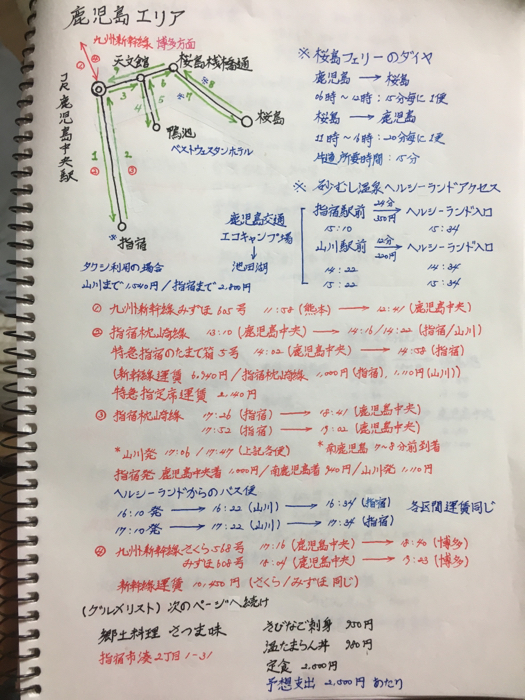 鹿児島エリア
九州新幹線 博多方面
天文館
桜島桟橋通
桜島
鴨池
ベストウェスタンホテル
JR鹿児島中央駅
※指宿
1
2
3
4
5
6
※7
※8
9
①
④
②
③
タクシー利用の場合
山川まで1,540円/指宿まで2,800円
※桜島フェリーのダイヤ
鹿児島 → 桜島
06時~12時:15分毎に1便
桜島 → 鹿児島
11時~16時:20分毎に1便
片道所要時間:15分
※砂むし温泉ヘルシーランドアクセス
鹿児島交通
エコキャンプ場
↓
池田湖
指宿駅前 24分 350円 → ヘルシーランド入口
15:10 15:34
山川駅前 12分 220円 → ヘルシーランド入口
14:22 14:34
15:22 15:34
① 九州新幹線みずほ605号 11:58(熊本) → 12:41(鹿児島中央)
② 指宿枕崎線 13:10(鹿児島中央) → 14:16/14:22(指宿/山川)
特急指宿のたまて箱5号 14:02(鹿児島中央) → 14:58(指宿)
(新幹線運賃 6,940円/指宿枕崎線 1,000円(指宿), 1,110円(山川))
特急指定席運賃 2,140円
③ 指宿枕崎線 17:26(指宿) → 18:41(鹿児島中央)
17:52(指宿) → 19:02(鹿児島中央)
*山川発 17:06/17:47(上記各便) *南鹿児島 7~8分前到着
指宿発 鹿児島中央着 1,000円/南鹿児島着 940円/山川発 1,110円
ヘルシーランドからのバス便
16:10発 → 16:22(山川) → 16:34(指宿) 各区間運賃同じ
17:10発 → 17:22(山川) → 17:34(指宿)
④ 九州新幹線さくら568号 17:16(鹿児島中央) → 18:40(博多)
みずほ608号 18:04(鹿児島中央) → 19:23(博多)
新幹線運賃 10,450円(さくら/みずほ同じ)
(グルメリスト)次のページへ続け
郷土料理 さつま味
指宿市湊2丁目1-31
きびなご刺身 950円
温たまらん丼 980円
定食 2,000円
予想支出 2,000円あたり